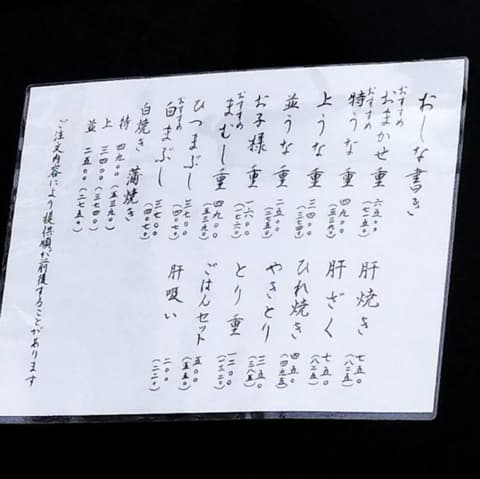 おしな書き
おすすめ
おまかせ重 六五〇〇 (七一五〇)
おすすめ
特うな重 四九〇〇 (五三九〇)
上うな重 三四〇〇 (三七四〇)
並うな重 二五〇〇 (二七五〇)
お子様重 一六〇〇 (一七六〇)
おすすめ
まむし重 四九〇〇 (五三九〇)
ひつまぶし 三七〇〇 (四〇七〇)
おすすめ
白まぶし 三七〇〇 (四〇七〇)
白焼き 蒲焼き
特 四九〇〇 (五三九〇)
上 三四〇〇 (三七四〇)
並 二五〇〇 (二七五〇)
肝焼き 七五〇 (八二五)
肝ざく 七五〇 (八二五)
ひれ焼き 四五〇 (四九五)
やきとり 三五〇 (三八五)
とり重 一二〇〇 (一三二〇)
ごはんセット 五〇〇 (五五〇)
肝吸い 二〇〇 (二二〇)
ご注文内容により提供順が前後することがあります